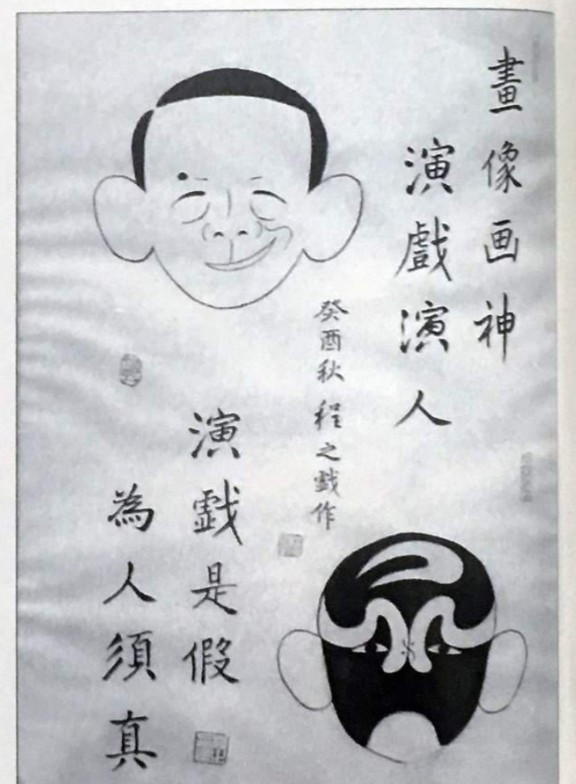 畫像画神
演戲演人
癸酉秋 程之戯作
演戯是假
為人須真